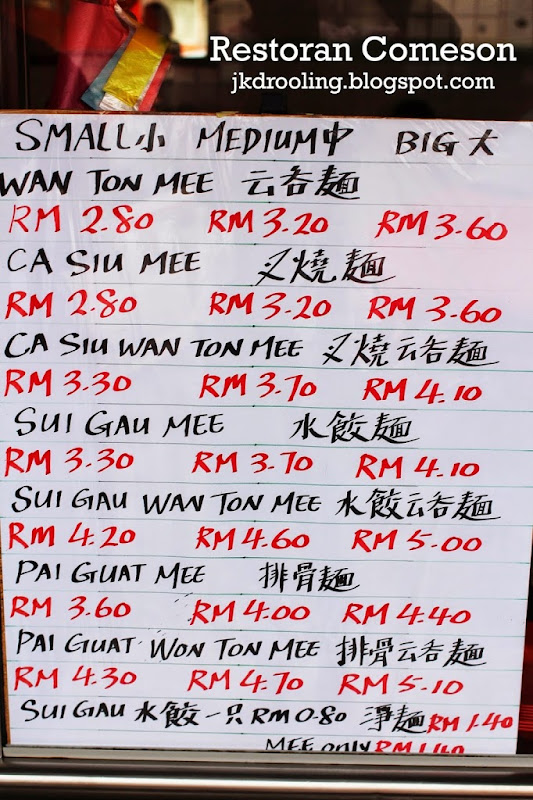 Restoran Comeson
jkdrooling.blogspot.com
SMALL小 MEDIUM中 BIG大
WAN TON MEE 云吞麵
RM 2.80 RM 3.20 RM 3.60
CA SIU MEE 叉燒麵
RM 2.80 RM 3.20 RM 3.60
CA SIU WAN TON MEE 叉燒云吞麵
RM 3.30 RM 3.70 RM 4.10
SUI GAU MEE 水餃麵
RM 3.30 RM 3.70 RM 4.10
SUI GAU WAN TON MEE 水餃云吞麵
RM 4.20 RM 4.60 RM 5.00
PAI GUAT MEE 排骨麵
RM 3.60 RM 4.00 RM 4.40
PAI GUAT WON TON MEE 排骨云吞麵
RM 4.30 RM 4.70 RM 5.10
SUI GAU 水餃一只 RM 0.80 淨麵 RM 1.40
MEE only RM 1.40